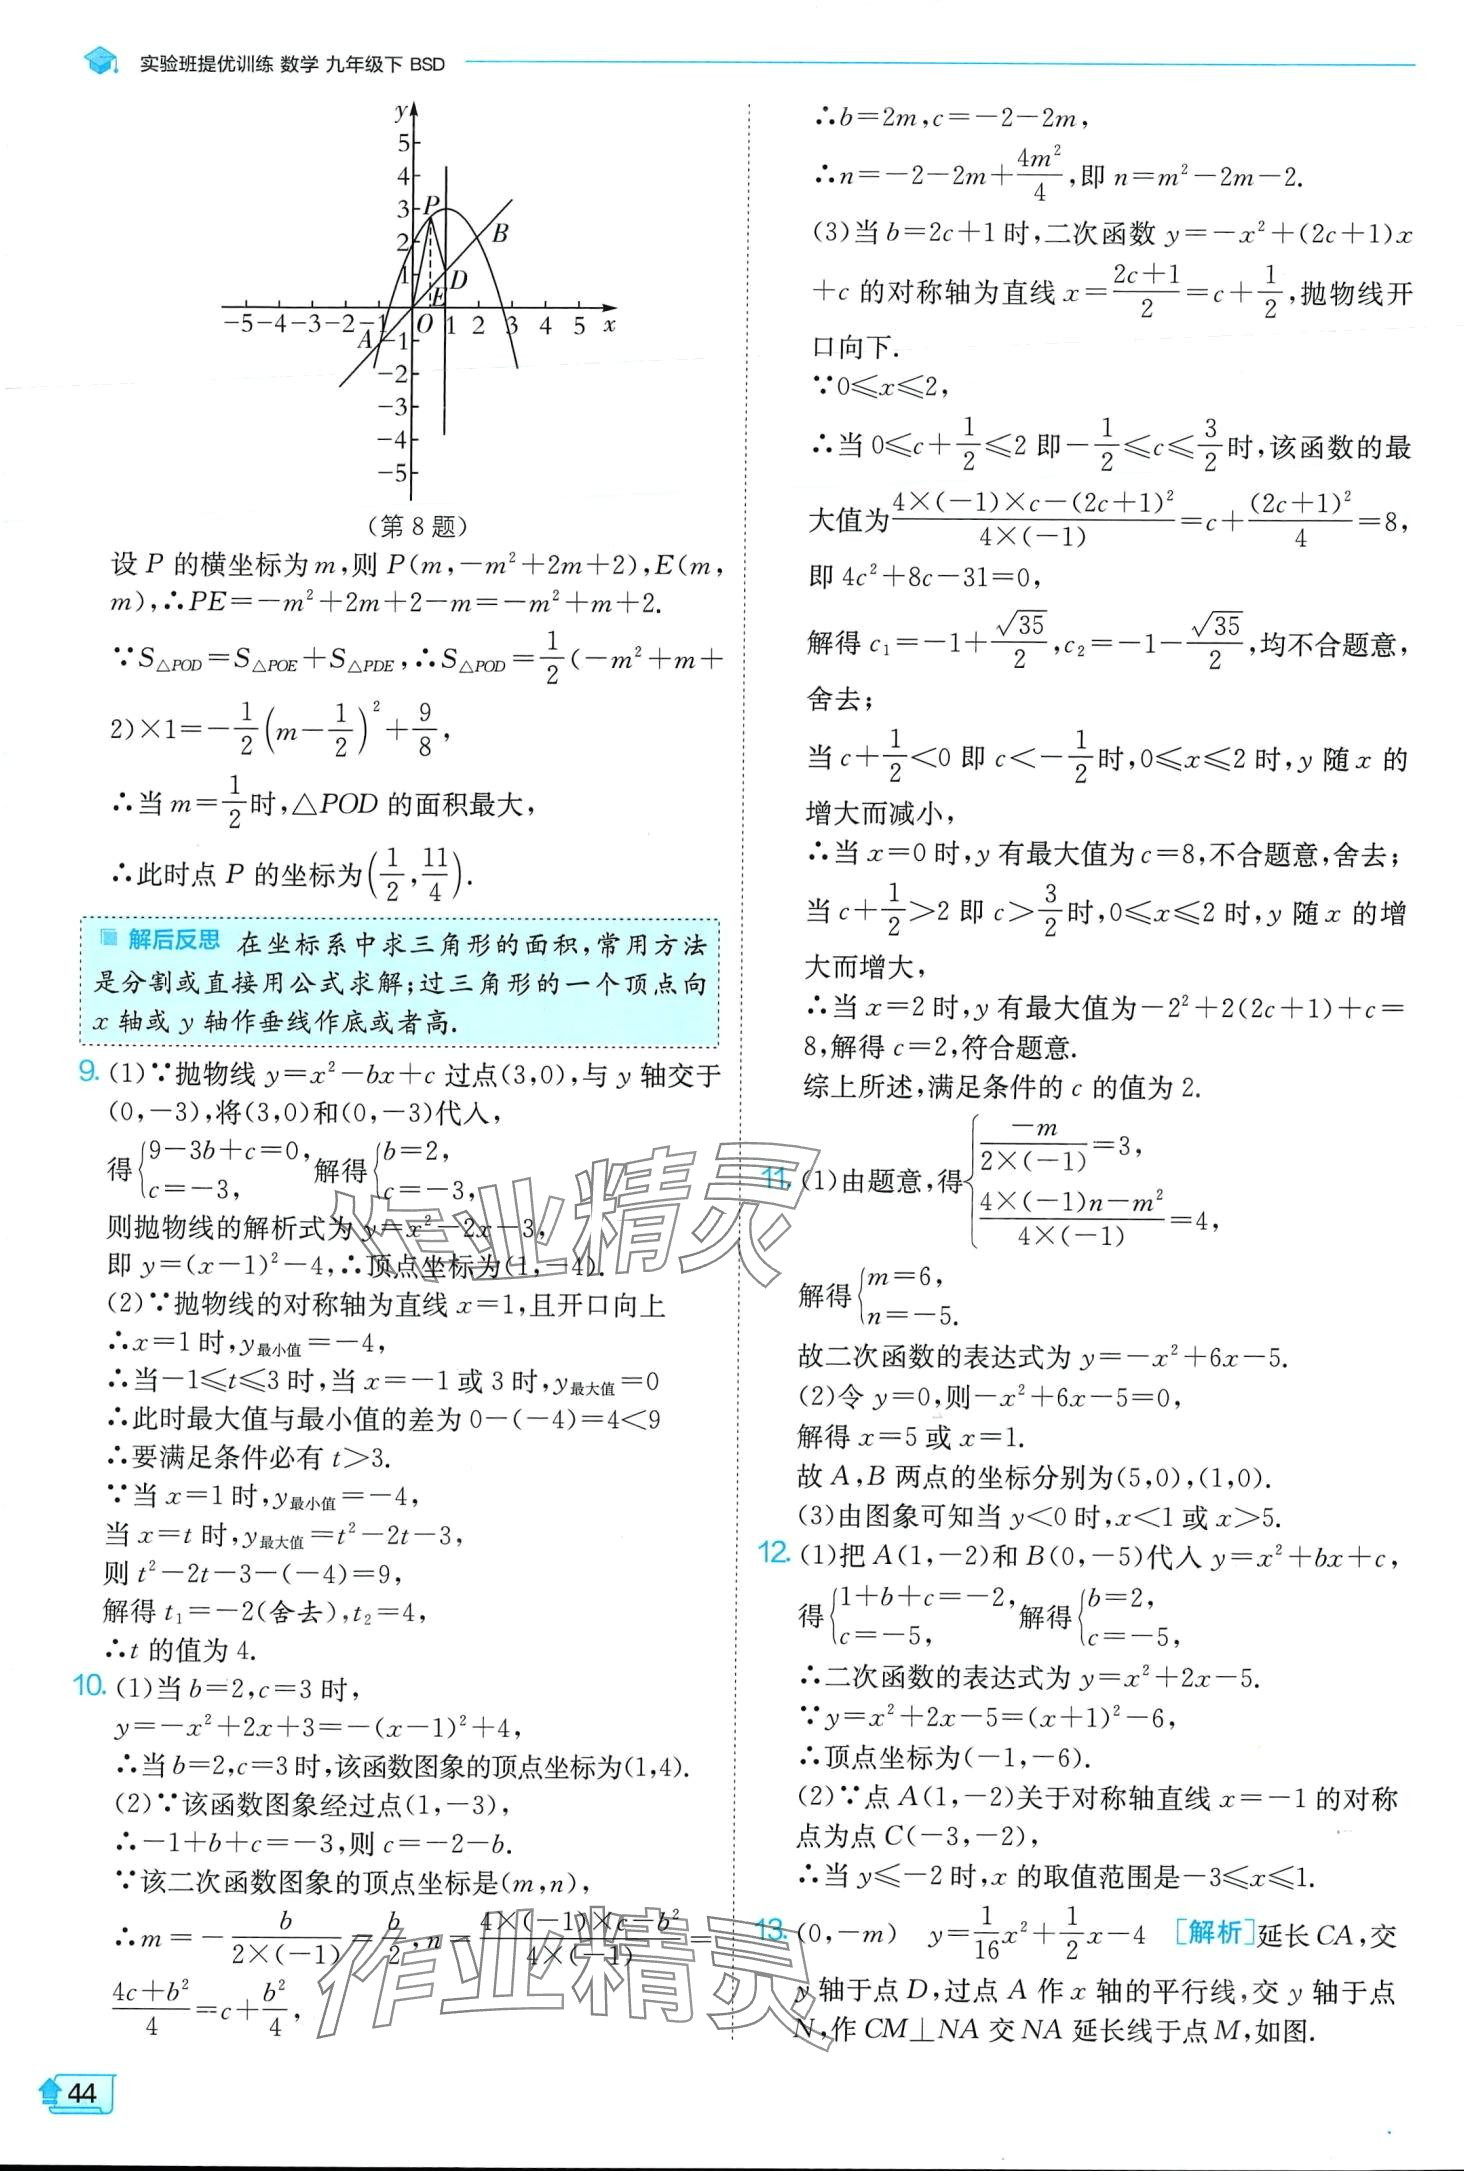 实验班提优训练 数学 九年级下 BSD
y
5
4
3
2
1
P
B
D
E
-5 -4 -3 -2 -1 O 1 2 3 4 5 x
A
-1
-2
-3
-4
-5
(第8题)
设 P 的横坐标为 m,则 P(m,-m²+2m+2),E(m,
m),∴PE=-m²+2m+2-m=-m²+m+2.
∵S△POD=S△POE+S△PDE,∴S△POD=1/2(-m²+m+
2)×1=-1/2(m-1/2)²+9/8,
∴当 m=1/2时,△POD 的面积最大,
∴此时点 P 的坐标为(1/2,11/4).
解后反思 在坐标系中求三角形的面积,常用方法
是分割或直接用公式求解;过三角形的一个顶点向
x 轴或 y 轴作垂线作底或者高.
9. (1)∵抛物线 y=x²-bx+c 过点(3,0),与 y 轴交于
(0,-3),将(3,0)和(0,-3)代入,
得{9-3b+c=0, c=-3, 解得{b=2, c=-3,
则抛物线的解析式为 y=x²-2x-3,
即 y=(x-1)²-4,∴顶点坐标为(1,-4).
(2)∵抛物线的对称轴为直线 x=1,且开口向上
∴x=1 时,y最小值=-4,
∴当-1≤t≤3 时,当 x=-1 或 3 时,y最大值=0
∴此时最大值与最小值的差为 0-(-4)=4<9
∴要满足条件必有 t>3.
∵当 x=1 时,y最小值=-4,
当 x=t 时,y最大值=t²-2t-3,
则 t²-2t-3-(-4)=9,
解得 t₁=-2(舍去),t₂=4,
∴t 的值为 4.
10. (1)当 b=2,c=3 时,
y=-x²+2x+3=-(x-1)²+4,
∴当 b=2,c=3 时,该函数图象的顶点坐标为(1,4).
(2)∵该函数图象经过点(1,-3),
∴-1+b+c=-3,则 c=-2-b.
∵该二次函数图象的顶点坐标是(m,n),
∴m=-b/(2×(-1))=b/2,n=(4×(-1)×c-b²)/(4×(-1))=
(4c+b²)/4=c+b²/4,
44
∴b=2m,c=-2-2m,
∴n=-2-2m+4m²/4,即 n=m²-2m-2.
(3)当 b=2c+1 时,二次函数 y=-x²+(2c+1)x
+c 的对称轴为直线 x=(2c+1)/2=c+1/2,抛物线开
口向下.
∵0≤x≤2,
∴当 0≤c+1/2≤2 即-1/2≤c≤3/2时,该函数的最
大值为(4×(-1)×c-(2c+1)²)/(4×(-1))=c+(2c+1)²/4=8,
即 4c²+8c-31=0,
解得 c₁=-1+√35/2,c₂=-1-√35/2,均不合题意,
舍去;
当 c+1/2<0 即 c<-1/2时,0≤x≤2 时,y 随 x 的
增大而减小,
∴当 x=0 时,y 有最大值为 c=8,不合题意,舍去;
当 c+1/2>2 即 c>3/2时,0≤x≤2 时,y 随 x 的增
大而增大,
∴当 x=2 时,y 有最大值为-2²+2(2c+1)+c=
8,解得 c=2,符合题意.
综上所述,满足条件的 c 的值为 2.
11. (1)由题意,得{-m/(2×(-1))=3, (4×(-1)n-m²)/(4×(-1))=4,
解得{m=6, n=-5.
故二次函数的表达式为 y=-x²+6x-5.
(2)令 y=0,则-x²+6x-5=0,
解得 x=5 或 x=1.
故 A,B 两点的坐标分别为(5,0),(1,0).
(3)由图象可知当 y<0 时,x<1 或 x>5.
12. (1)把 A(1,-2)和 B(0,-5)代入 y=x²+bx+c,
得{1+b+c=-2, c=-5, 解得{b=2, c=-5,
∴二次函数的表达式为 y=x²+2x-5.
∵y=x²+2x-5=(x+1)²-6,
∴顶点坐标为(-1,-6).
(2)∵点 A(1,-2)关于对称轴直线 x=-1 的对称
点为点 C(-3,-2),
∴当 y≤-2 时,x 的取值范围是-3≤x≤1.
13. (0,-m) y=1/16x²+1/2x-4 [解析]延长 CA,交
y 轴于点 D,过点 A 作 x 轴的平行线,交 y 轴于点
N,作 CM⊥NA 交 NA 延长线于点 M,如图.
作业精灵
作业精灵